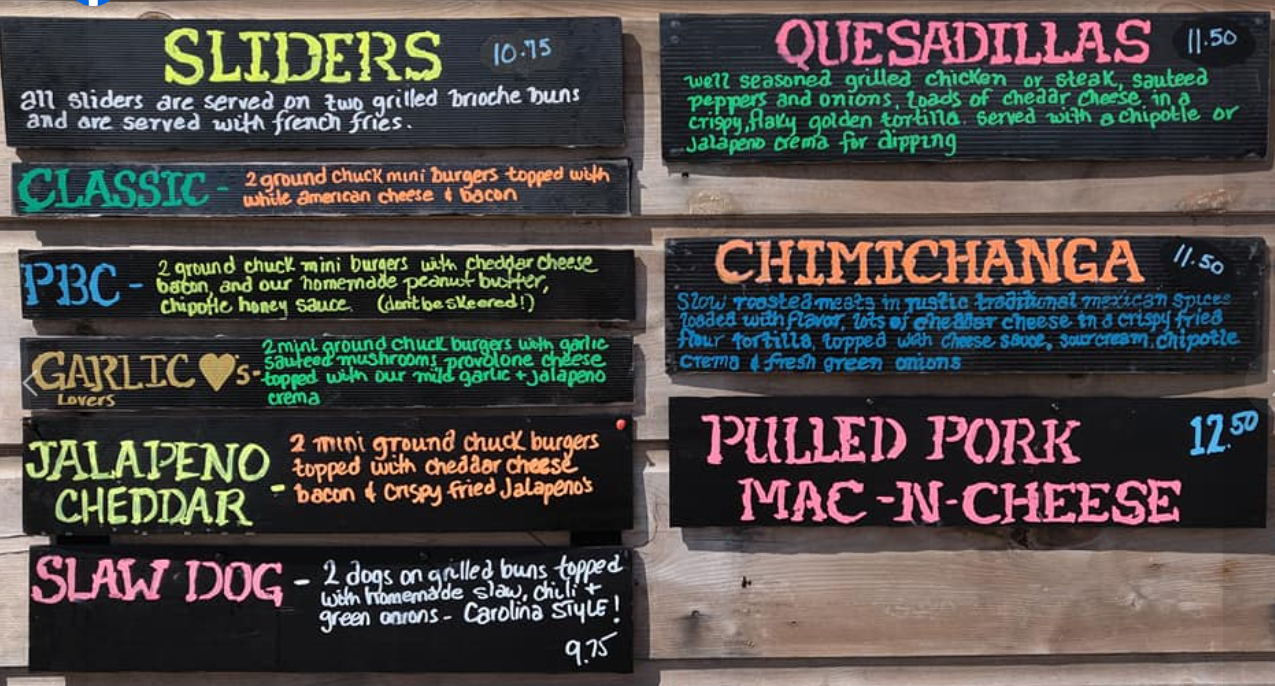 SLIDERS 10.75
all sliders are served on two grilled brioche buns
and are served with french fries.
CLASSIC - 2 ground chuck mini burgers topped with
white american cheese & bacon
PBC - 2 ground chuck mini burgers with cheddar cheese
bacon, and our homemade peanut butter,
chipotle honey sauce. (dont be skeered!)
GARLIC ♥'s-
Lovers
2 mini ground chuck burgers with garlic
sauteed mushrooms, provolone cheese
topped with our mild garlic + jalapeno
crema
JALAPENO
CHEDDAR -
2 mini ground chuck burgers
topped with cheddar cheese
bacon & crispy fried Jalapeno's
SLAW DOG - 2 dogs on grilled buns topped
with homemade slaw, chili +
green onions - Carolina STYLE!
9.75
QUESADILLAS 11.50
well seasoned grilled chicken or steak, sauteed
peppers and onions, loads of cheddar cheese in a
crispy, flaky golden tortilla. Served with a chipotle or
jalapeno crema for dipping
CHIMICHANGA 11.50
Slow roasted meats in rustic traditional mexican spices
loaded with flavor, lots of cheddar cheese in a crispy fried
flour tortilla, topped with cheese sauce, sour cream, chipotle
crema & fresh green onions
PULLED PORK 12.50
MAC-N-CHEESE